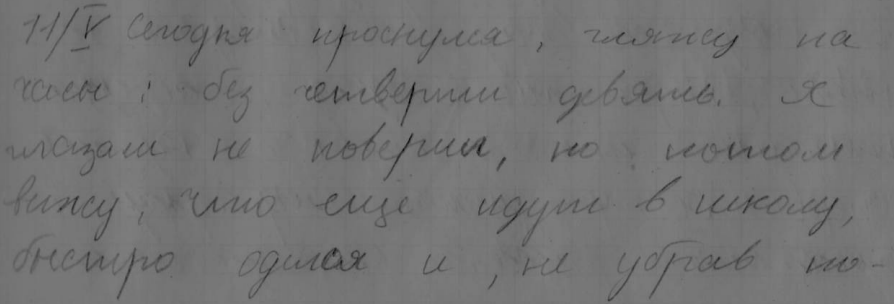 11/V Сегодня проснулся, гляжу на
часы: без четверти девять. Я
глазам не поверил, но потом
вижу, что еще идут в школу,
быстро оделся и, не убрав по-